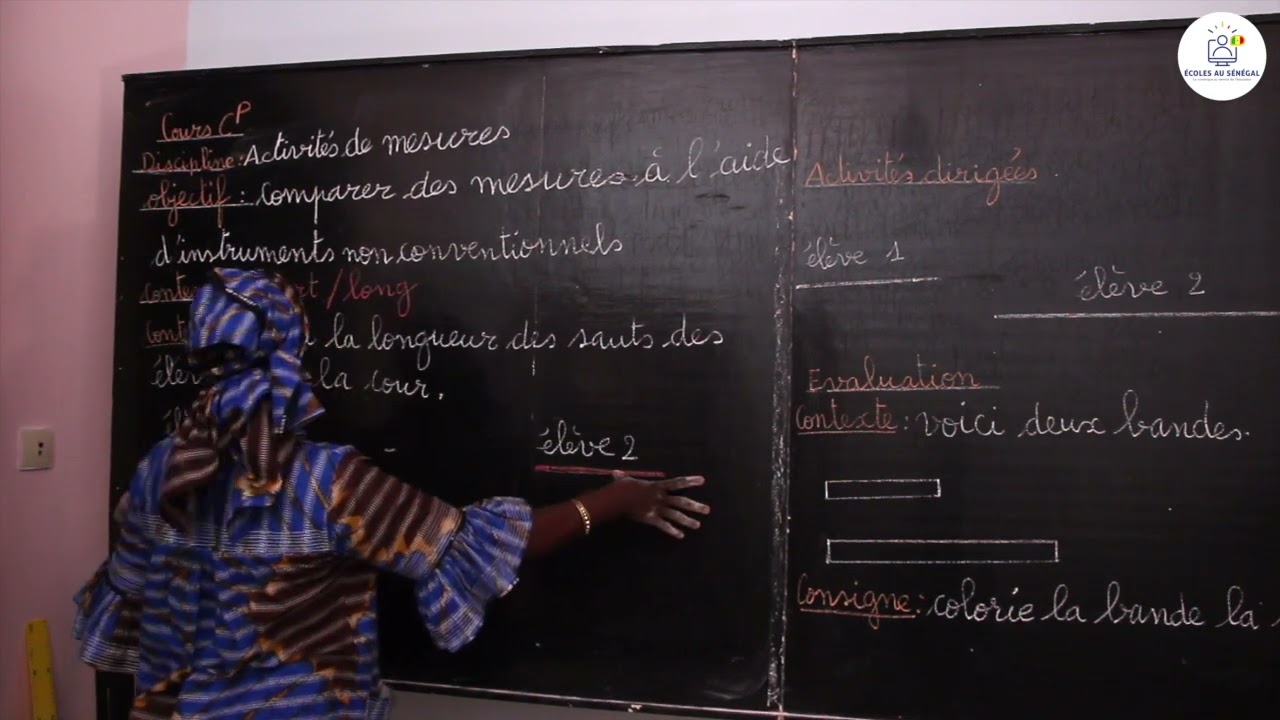 Cours CP
Discipline : Activités de mesures
objectif : comparer des mesures à l'aide
d'instruments non conventionnels
/long
la longueur des sauts des
la cour.
élève 2
Activités dirigées
élève 1
élève 2
Evaluation
Contexte : voici deux bandes.
Consigne : colorie la bande la
ÉCOLES AU SÉNÉGAL